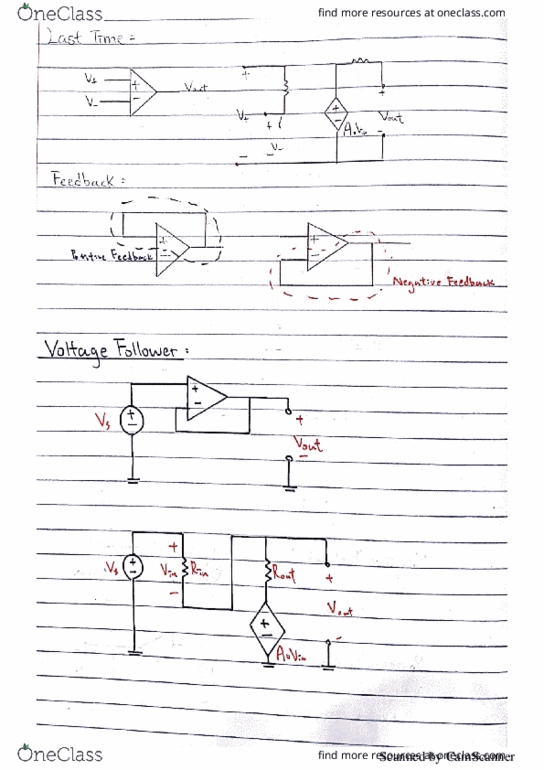 OneClass
find more resources at oneclass.com
Last Time :
V+
+
-
V-
Vout
+
V+
+
V-
-
+
-
AoVin
+
Vout
-
Feedback :
+
-
Positive Feedback
+
-
Negative Feedback
Voltage Follower :
Vs
+
-
+
-
+
Vout
-
Vs
+
-
+
Vin
-
Rin
Rout
+
-
AoVin
+
Vout
-
OneClass
find more resources at oneclass.com
Scanned by CamScanner